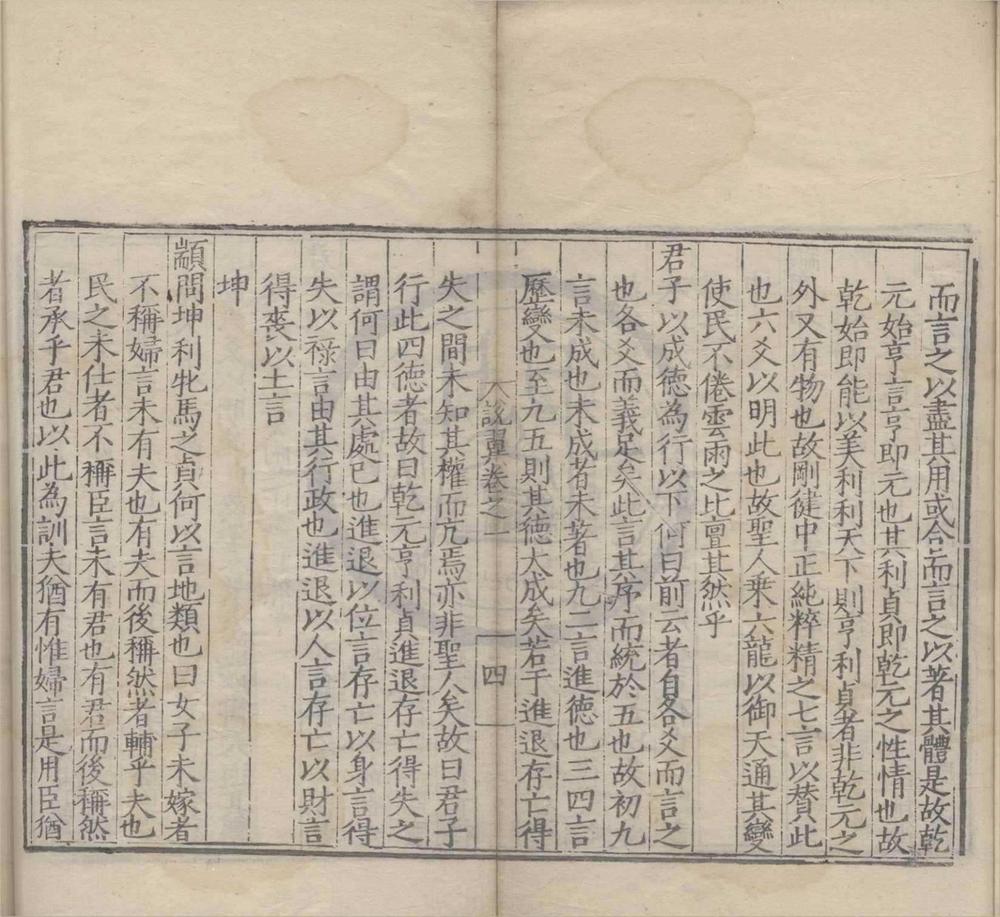 而言之以盡其用或合而言之以著其體是故乾
元始亨言亨即元也其利貞即乾元之性情也故
乾始即能以美利利天下則亨利貞者非乾元之
外又有物也故剛健中正純粹精之七言以賛此
也六爻以明此也故聖人乗六龍以御天通其變
使民不倦雲雨之比豈其然乎
君子以成徳為行以下何曰前云者自各爻而言之
也各爻而義足矣此言其序而統於五也故初九
言未成也未成者未著也九二言進徳也三四言
歷變也至九五則其徳大成矣若于進退存亡得
說翼卷之一
四
失之間未知其權而亢焉亦非聖人矣故曰君子
行此四徳者故曰乾元亨利貞進退存亡得失之
謂何曰由其處已也進退以位言存亡以身言得
失以禄言由其行政也進退以人言存亡以財言
得喪以土言
坤
顓問坤利牝馬之貞何以言地類也曰女子未嫁者
不稱婦言未有夫也有夫而後稱然者輔乎夫也
民之未仕者不稱臣言未有君也有君而後稱然
者承乎君也以此為訓夫猶有惟婦言是用臣猶